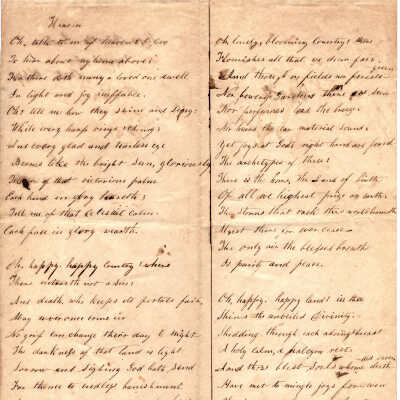 Heaven
Oh, talk to me of heaven I love
To hear about my home above;
For there doth many a loved one dwell
In light and joy ineffable.
Oh! tell me how they shine and sing;
While every harp rings echoing;
And every glad and tearless eye
Beams like the bright sun, gloriously
Tell me of that victorious palm
Each hand in glory beareth;
Tell me of that celestial calm
Each face in glory weareth.
Oh, happy, happy country! where
There entereth not a sin;
And death, who keeps its portals fair,
May never once come in
No grief can change their day to night
The darkness of that land is light
Sorrow and sighing God hath send
Far thence to endless banishment
Oh, lovely, blooming country! there
Flourishes all that we deem fair
And though no fields nor forests green
Nor bowery gardens there are seen
Nor perfumes load the breeze
Nor hears the ear material sound
Yet joys at God's right hand are found
The archetypes of these;
There is the home, the land of birth
Of all we highest prize on earth;
The storms that rack this world beneath
Must there for ever cease
The only air the blessed breathe
Is purity and peace.
Oh, happy, happy land! in thee
Shines the unveiled divinity
Shedding through each adoring breast
A holy calm, a halcyon rest.
And those blest souls whom death did sever
Have met to mingle joys for ever